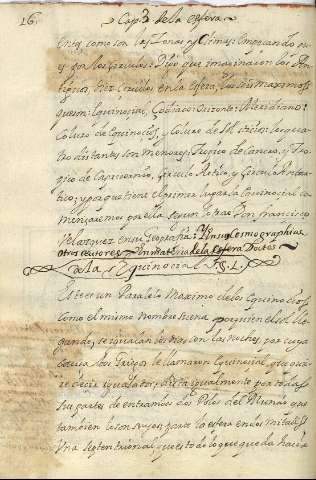 26. Cap.º de la esfera
como son las Zonas y Climas: Empecando
por los circulos: Digo que imaginaron los An-
tiguos, diez Circulos en la Esfera, los seis maximos
que son: Equinocial, Çodiaco: Orizonte: Meridiano:
Coluro de Equinocios, y coluro de Solsticios: los qua-
tro distantes son menores: Tropico de Cancro, y Tro-
pico de Capricornio, Circulo Artico, y Circulo Antar-
tico; y porque tiene el primer lugar la Equinocial co-
mensaremos por ella segun lo trae Don Francisco
Velazquez en su Geographia: y en su Cosmographia
otros autores en la materia de la esfera Doctos
De la Equinocial §. L.
Este es un Paralelo Maximo de los Equinocios,
como el mismo nombre suena porque en el sol lle-
gando, se igualan los dias con las noches, por cuya
causa los Griegos le llamaron Equinocial, que quie-
re decir igualator; dista igualmente por todas
sus partes de entrambos dos Polos del Mundo, que
tambien lo son suyos, parte la esfera en dos mitades
Una septentrional que es todo lo que queda hacia